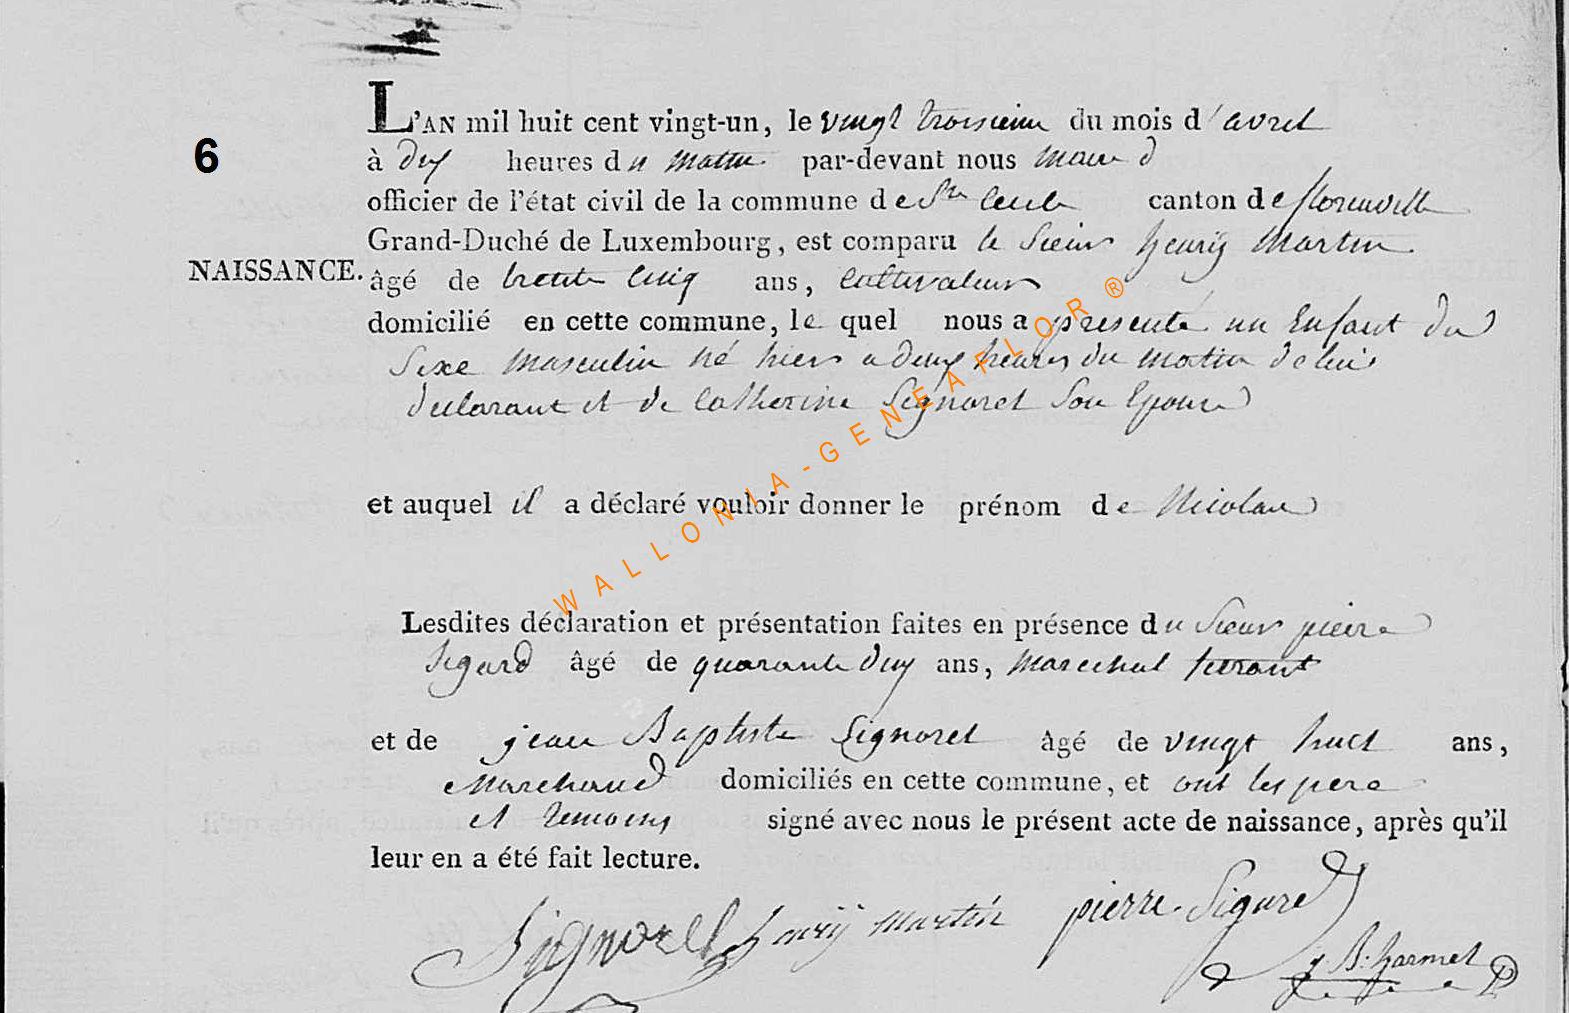 L'AN mil huit cent vingt-un, le vingt troisieme du mois d'avril
6
à dix heures du matin par-devant nous maire
officier de l'état civil de la commune de Ste Cecile canton de florenville
Grand-Duché de Luxembourg, est comparu le Sieur henrÿ Martin
NAISSANCE.
âgé de trente Cinq ans, Cultivateur
domicilié en cette commune, le quel nous a presenté un Enfant du
Sexe Masculin né hier a deux heures du matin de lui
declarant et de Catherine Signoret Son Epouse
et auquel il a déclaré vouloir donner le prénom de Nicolas
Lesdites déclaration et présentation faites en présence du Sieur pierre
Sigard âgé de quarante deux ans, Marechal ferrant
et de jean Baptiste Signoret âgé de vingt huit ans,
Marchand domiciliés en cette commune, et ont les pere
et temoins signé avec nous le présent acte de naissance, après qu'il
leur en a été fait lecture.
Signoret henrÿ martin pierre Sigard
J B. harmel
WALLONIA-GENEAFLOR ®